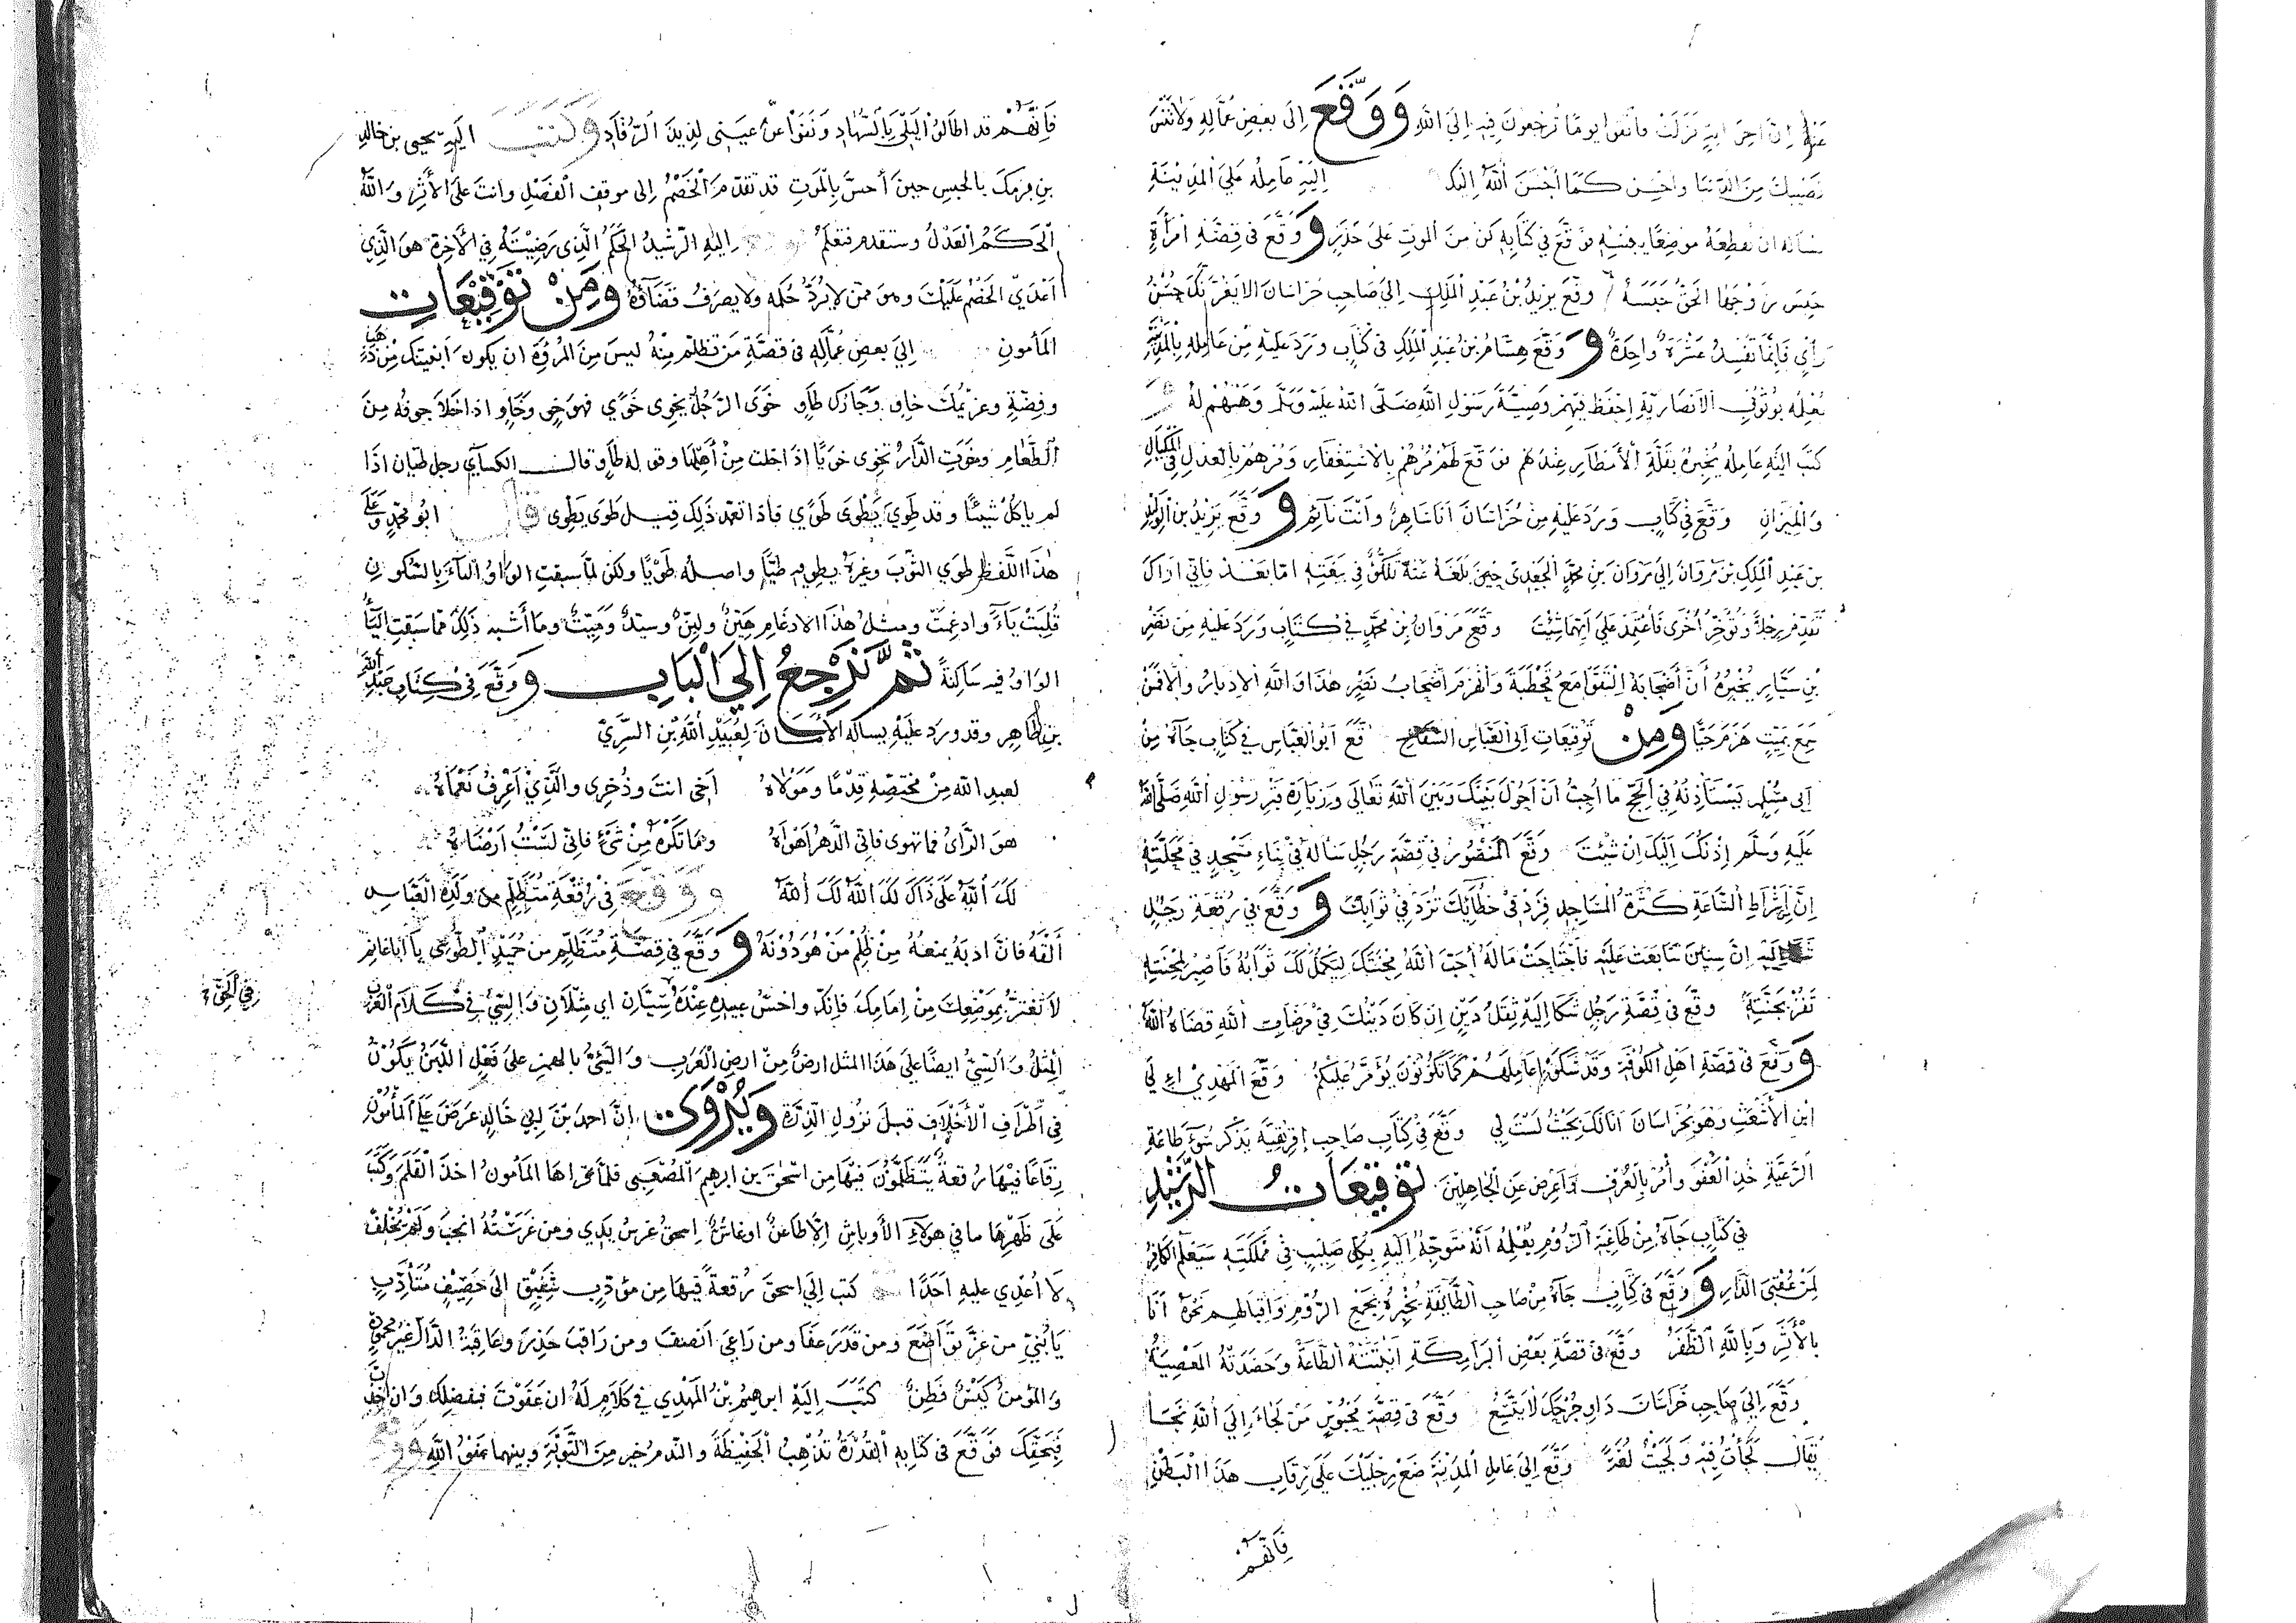 عنه إن آخر آية نزلت واتقوا يوما ترجعون فيه إلى الله ووقع إلى بعض عماله ولا تنس
نصيبك من الدنيا وأحسن كما أحسن الله إليك إليه عامله على المدينة
يسأله أن يقطعه موضعا فوقع في كتابه كن من الموت على حذر ووقع في قصة امرأة
حبس زوجها الحق حبسه وقع يزيد بن عبد الملك إلى صاحب خراسان لا يغرنك حسن
رأي فإنما تفسده عثرة واحدة ووقع هشام بن عبد الملك في كتاب ورد عليه من عامله بالمدينة
الأنصارية احفظ فيهم وصية رسول الله صلى الله عليه وسلم وهبهم له
كتب إليه عامله يخبره بقلة الأمطار عندهم فوقع لهم مرهم بالاستغفار ومرهم بالعدل في المكيال
والميزان وقع في كتاب ورد عليه من خراسان أنا ساهر وأنت نائم ووقع يزيد بن الوليد
بن عبد الملك بن مروان إلى مروان بن محمد الجعدي حين بلغه عنه تلكؤ في بيعته أما بعد فإني أراك
تقدم رجلا وتؤخر أخرى فاعتمد على أيهما شئت وقع مروان بن محمد في كتاب ورد عليه من نصر
بن سيار يخبره أن أصحابه التقوا مع قحطبة وانهزم أصحاب نصر هذا والله الإدبار وإلا فمن
سمع بميت هزم حيا ومن توقيعات أبي العباس السفاح وقع أبو العباس في كتاب جاءه من
أبي مسلم يستأذنه في الحج ما أحب أن أحول بينك وبين الله تعالى وزيارة قبر رسول الله صلى الله
عليه وسلم إذنك إليك إن شئت وقع المنصور في قصة رجل سأله في بناء مسجد في محلته
إن أشراط الساعة كثرة المساجد فزد في خطائك تزد في ثوابك ووقع في رقعة رجل
إليه إن سنين تتابعت عليه فاجتاحت ماله أحب الله محنتك ليكمل لك ثوابه فاصبر لمحنته
تفز بجنته وقع في قصة رجل شكا إليه ثقل دين إن كان دينك في مرضات الله قضاه الله
ووقع في قصة أهل الكوفة وقد شكوا عاملهم كما تكونون يؤمر عليكم وقع المهدي إلى
ابن الأشعث وهو بخراسان أنا لك بحيث لست لي وقع في كتاب صاحب إفريقية يذكر سوء طاعة
الرعية خذ العفو وأمر بالعرف وأعرض عن الجاهلين توقيعات الرشيد
في كتاب جاءه من طاغية الروم يعلمه أنه متوجه إليه بكل صليب في مملكته سيعلم الكافر
لمن عقبى الدار ووقع في كتاب جاءه من صاحب الطائفة يخبره بجمع الروم وإقبالهم نحوه أنا
بالأثر وبالله الظفر وقع في قصة بعض البرامكة أنبتته الطاعة وحصدته المعصية
وقع إلى صاحب خراسان داو جرحك لا يتسع وقع في قصة محبوس من لجأ إلى الله نجا
يقال لجأت فيه ولجيت لغة وقع إلى عامل المدينة ضع رجليك على رقاب هذا البطن
فإنهم
فإنهم قد أطالوا ليلي بالسهاد ونفوا عن عيني لذيذ الرقاد وكتب إليه يحيى بن خالد
بن برمك بالحبس حين أحس بالموت قد تقدم الخصم إلى موقف الفصل وأنت على الأثر والله
الحكم العدل وستقدم فتعلم إليه الرشيد الحكم الذي رضيته في الآخرة هو الذي
أعدى الخصم عليك وهو ممن لا يرد حكمه ولا يصرف قضاؤه ومن توقيعات
المأمون إلى بعض عماله في قصة من تظلم منه ليس من المروة أن يكون آنيتك من ذهب
وفضة وغريمك خاو وجارك طاو خوى الرجل يخوى خوى فهو خو وخاو إذا خلا جوفه من
الطعام وخوت الدار تخوى خويا إذا خلت من أهلها وقوله طاو قال الكسائي رجل طيان إذا
لم يأكل شيئا وقد طوي يطوى طوى فإذا تعمد ذلك قيل طوى يطوي قال أبو محمد وعلى
هذا اللفظ طوى الثوب وغيره يطويه طيا وأصله طويا ولكن لما سبقت الواو الياء بالسكون
قلبت ياء وادغمت ومثل هذا الادغام هين ولين وسيد وميت وما أشبه ذلك مما سبقت الياء
الواو فيه ساكنة ثم نرجع إلى الباب ووقع في كتاب عبد الله
بن طاهر وقد ورد عليه يسأله الأمان لعبيد الله بن السري
لعبد الله من مختصه قدما ومولاه أخي أنت وذخري والذي أعرف نعماه
هو الرأي فما تهوى فإني الدهر أهواه وما تكره من شيء فإني لست أرضاه
لك الله على ذاك لك الله لك الله ووقع في رقعة متظلم من ولده العباس
ألقه فان أدبه يمنعه من ظلم من هو دونه ووقع في قصة متظلم من حميد الطوسي يا أبا غانم
لا تغتر بموضعك من إمامك فإنك وأخس عبيده عنده سيان أي مثلان والسي في كلام العرب
في الحق
المثل والسي أيضا على هذا المثل أرض من أرض العرب والسيء بالهمز على فعل اللبن يكون
في أطراف الأخلاف قبل نزول الدرة ويروى إن أحمد بن أبي خالد عرض على المأمون
رقاعا فيها رقعة يتظلمون فيها من إسحق بن ابرهيم المصعبي فلما قراها المأمون أخذ القلم وكتب
على ظهرها ما في هولاء الأوباش إلا طاعن أو غاش إسحق غرس يدي ومن غرسته أنجب ولم يخلف
لا أعدي عليه أحدا كتب إلى إسحق رقعة فيها من مؤدب شفيق إلى حصيف متأدب
يا بني من عز تواضع ومن قدر عفا ومن راعى أنصف ومن راقب حذر وعاقبة الدالة غير محمودة
والمؤمن كيس فطن كتب إليه ابرهيم بن المهدي في كلام له إن عفوت فبفضلك وإن أخذت
فبحقك فوقع في كتابه القدرة تذهب الحفيظة والندم خير من التوبة وبينهما عفو الله ووقع